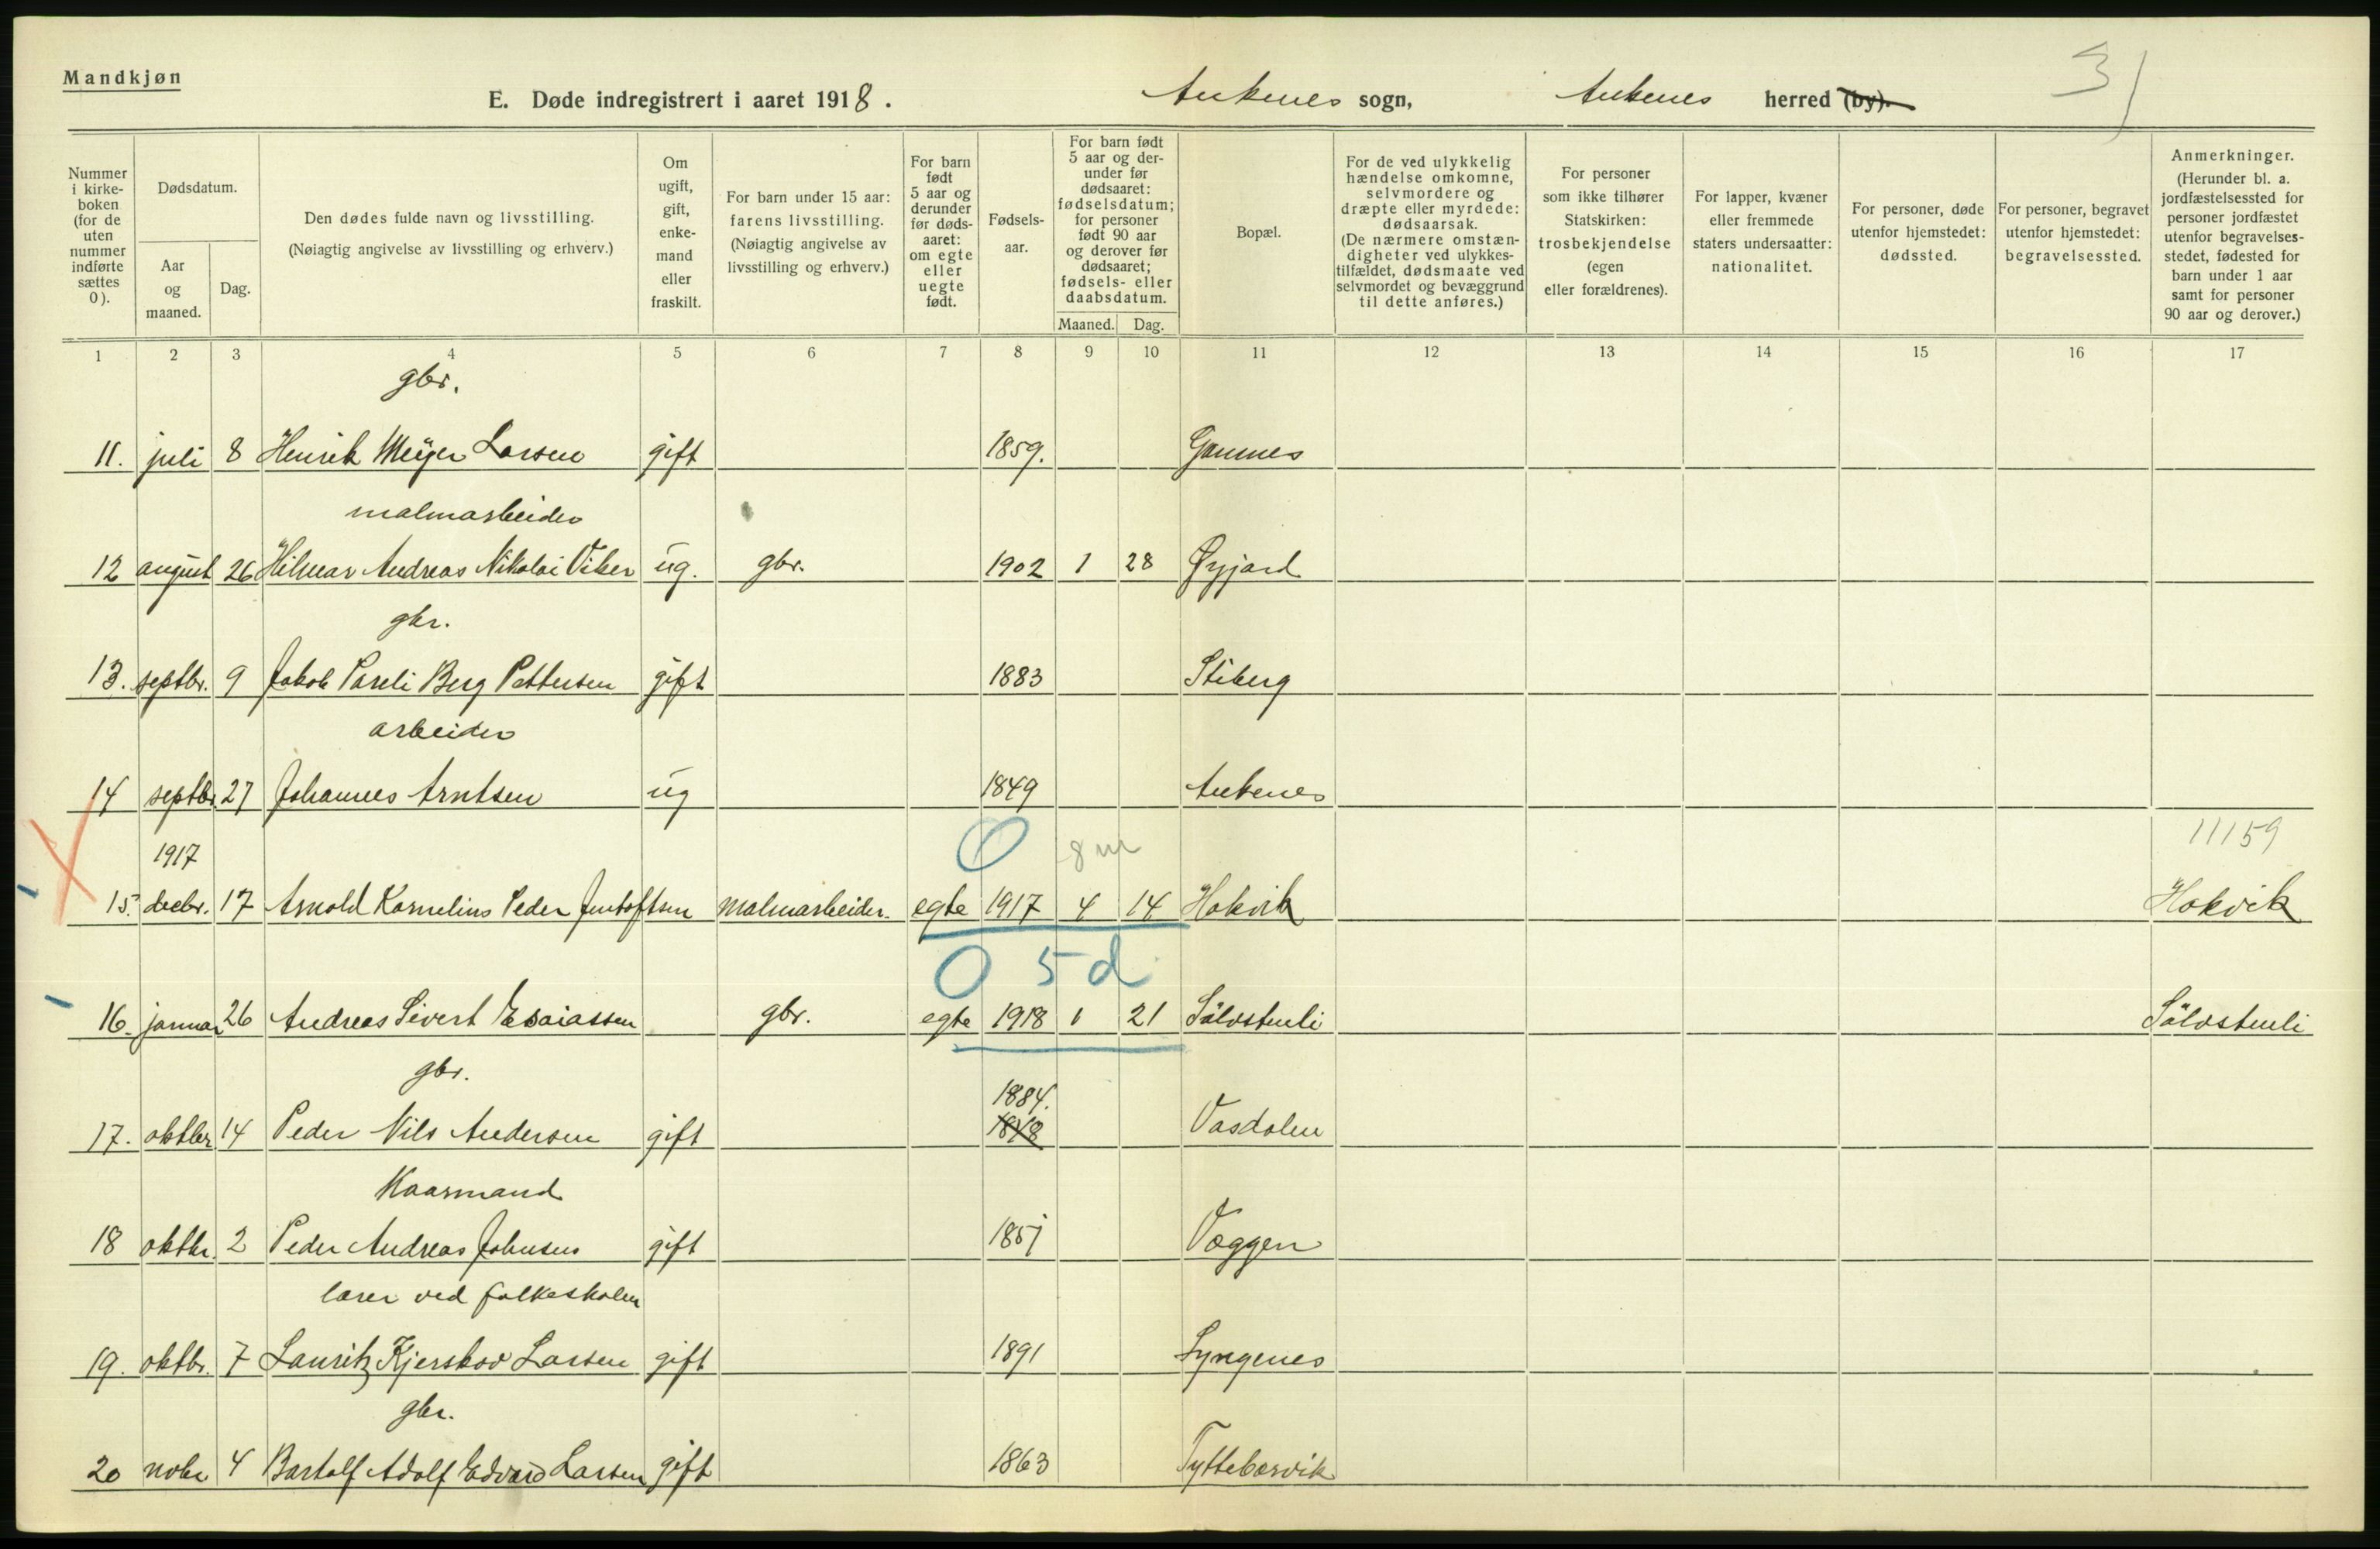 Mandkjøn
E. Døde indregistrert i aaret 1918. Ankenes sogn, Ankenes herred (by).
3
Nummer i kirke-boken (for de uten nummer indførte sættes 0).
Dødsdatum.
Aar og maaned.
Dag.
Den dødes fulde navn og livsstilling.
(Nøiagtig angivelse av livsstilling og erhverv.)
Om ugift, gift, enke-mand eller fraskilt.
For barn under 15 aar: farens livsstilling. (Nøiagtig angivelse av livsstilling og erhverv.)
For barn født 5 aar og derunder før døds-aaret: om egte eller uegte født.
Fødsels-aar.
For barn født 5 aar og der-under før dødsaaret: fødselsdatum; for personer født 90 aar og derover før dødsaaret; fødsels- eller daabsdatum.
Maaned. Dag.
Bopæl.
For de ved ulykkelig hændelse omkomne, selvmordere og dræpte eller myrdede: dødsaarsak. (De nærmere omstæn-digheter ved ulykkes-tilfældet, dødsmaate ved selvmordet og bevæggrund til dette anføres.)
For personer som ikke tilhører Statskirken: trosbekjendelse (egen eller forældrenes).
For lapper, kvæner eller fremmede staters undersaatter: nationalitet.
For personer, døde utenfor hjemstedet: dødssted.
For personer, begravet utenfor hjemstedet: begravelsessted.
Anmerkninger. (Herunder bl. a. jordfæstelsessted for personer jordfæstet utenfor begravelses-stedet, fødested for barn under 1 aar samt for personer 90 aar og derover.)
1 2 3 4 5 6 7 8 9 10 11 12 13 14 15 16 17
gbr.
11. juli 8 Henrik Meyer Larsen gift 1859. Gammes
malmarbeider
12 august 26 Hilmar Andreas Nikolai Viker ug. gbr. 1902 1 28 Øyjord
gbr.
13. septbr. 9 Jakob Pareli Berg Pettersen gift 1883 Stiberg
arbeider
14 septbr. 27 Johannes Arntsen ug 1849 Ankenes
1917 0 8 m 11159
15. decbr. 17 Arnold Kornelius Peder Jentoftsen malmarbeider. egte 1917 4 14 Hokvik Hokvik
0 5 d
16. januar 26 Andreas Sivert Esaiassen gbr. egte 1918 1 21 Sölvstuli Sölvstuli
gbr. 1884.
17. oktbr 14 Peder Nils Andersen gift 1818 Vasdalen
Kaarmand
18 oktbr. 2 Peder Andreas Johnsen gift 1857 Væggen
lærer ved folkeskolen
19. oktbr. 7 Lauritz Kjerskov Larsen gift 1891 Lyngenes
gbr.
20 nobr 4 Bartolf Adolf Edvard Larsen gift 1863 Tyttebærvik